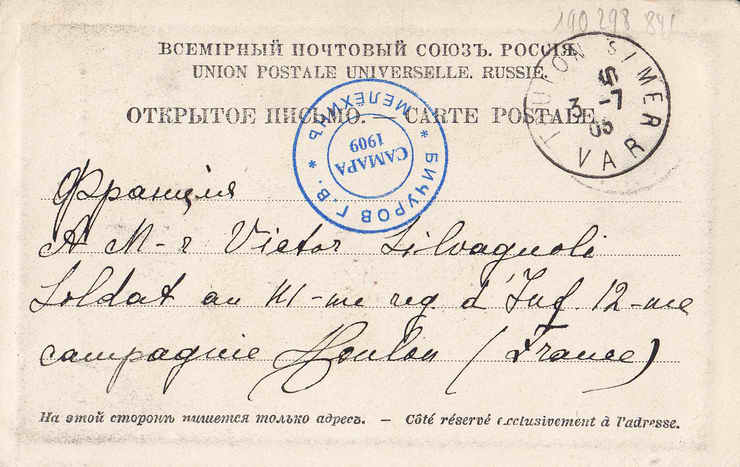 190 298 841
ВСЕМІРНЫЙ ПОЧТОВЫЙ СОЮЗЪ. РОССІЯ.
UNION POSTALE UNIVERSELLE. RUSSIE.
ОТКРЫТОЕ ПИСЬМО. — CARTE POSTALE.
TOULON S/MER
5
3 -7
05
VAR
* БИЧУРОВ Г.В. * МЕЛЁХИНЪ
САМАРА
1909
Франція
A M-r Victor Silvagnoli
Soldat au 111-me reg d'Inf. 12-me
compagnie Toulon (France)
На этой сторонѣ пишется только адресъ. — Côté réservé exclusivement à l'adresse.